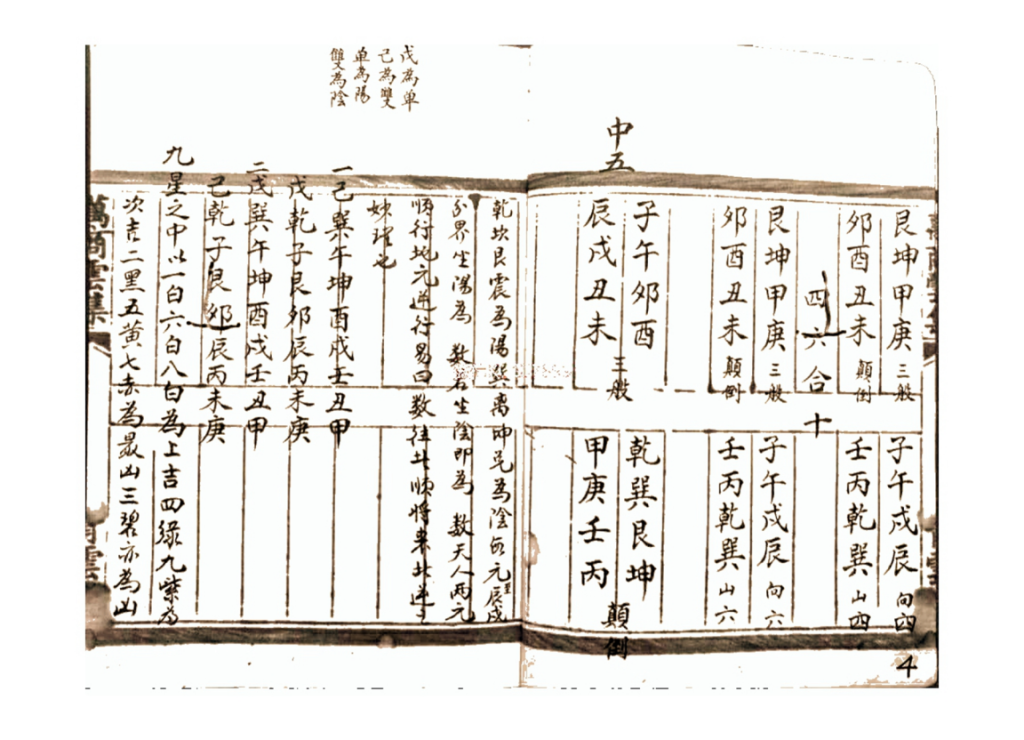 艮坤甲庚 三般
子午戌辰 向四
卯酉丑未 顛倒
壬丙乾巽 山四
四六合十
艮坤甲庚 三般
子午戌辰 向六
卯酉丑未 顛倒
壬丙乾巽 山六
中五
子午卯酉
辰戌丑未
三般
乾巽艮坤
甲庚壬丙
顛倒
4
戊為单
己為雙
单為陽
雙為陰
乾坎艮震為陽巽离坤兌為陰 元辰戌
分界坐陽為 数若坐陰即為 数天人兩元
順行地元逆行易曰数往者順將來者逆之
妹理也
一己巽午坤酉戌壬丑甲
戊乾子艮卯辰丙未庚
二戊巽午坤酉戌壬丑甲
己乾子艮卯辰丙未庚
九星之中以一白六白八白為上吉四綠九紫為
次吉二黑五黃七赤為最凶三碧亦為凶